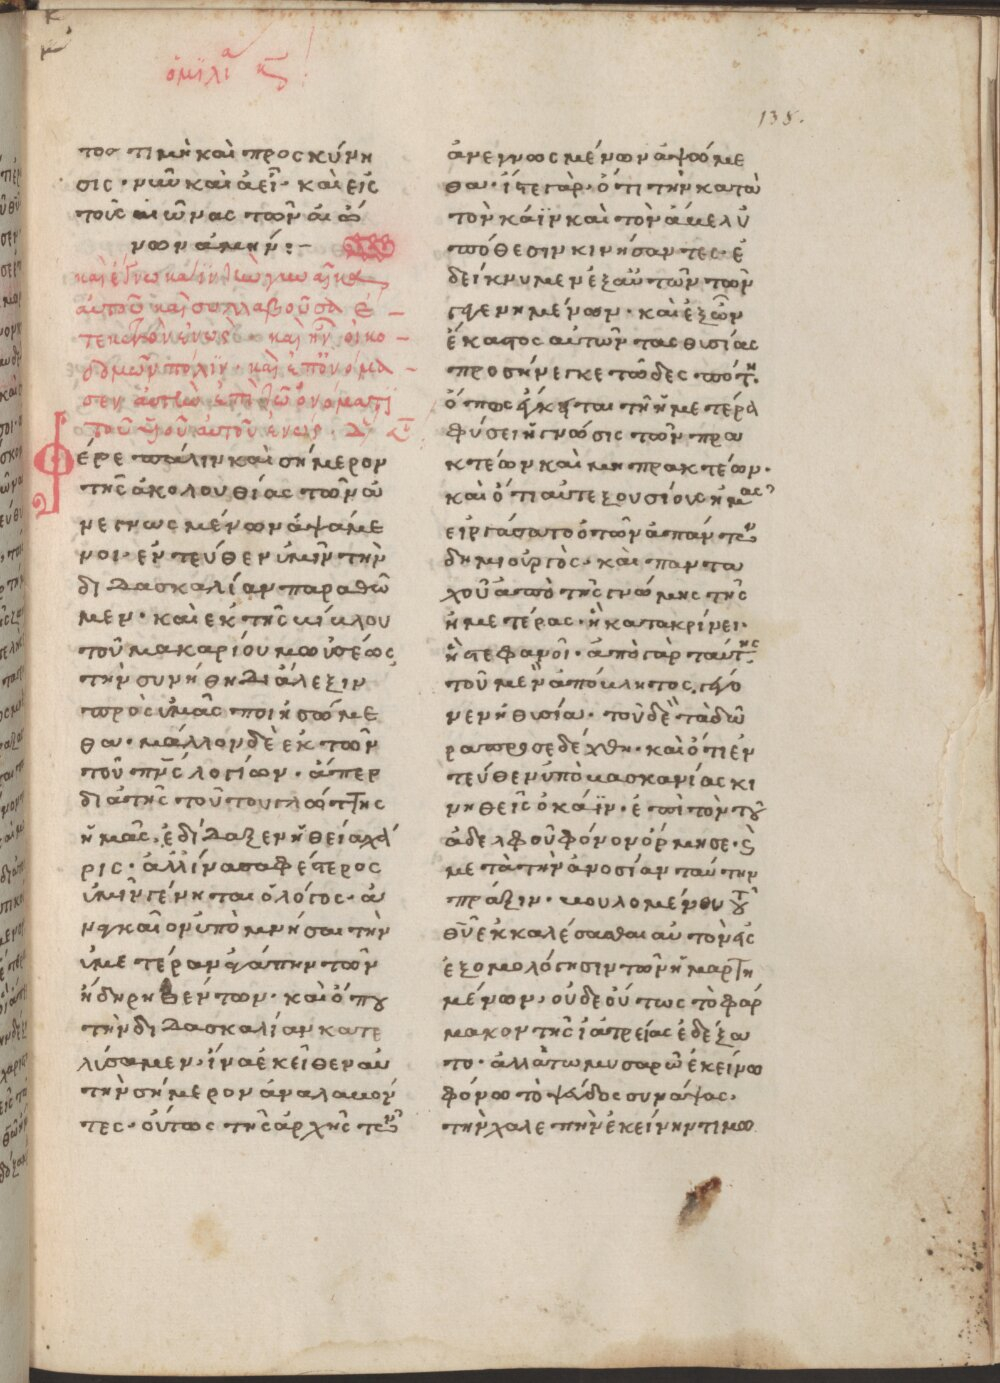 ὁμιλία κ
135.
τος τιμὴ καὶ προσκύνη
σις· νῦν καὶ ἀεὶ· καὶ εἰς
τοὺς αἰῶνας τῶν αἰώ
νων ἀμήν:-
καὶ ἔγνω καϊν τὴν γυναῖκα
αὐτοῦ καὶ συλλαβοῦσα ἔ
τεκε τὸν ἐνώχ· καὶ ἦν οἰκο
δομῶν πόλιν· καὶ ἐπονόμα
σεν αὐτὴν ἐπὶ τῶ ὀνόματι
τοῦ υἱοῦ αὐτοῦ ἐνώχ·
Φέρε πάλιν καὶ σήμερον
τῆς ἀκολουθίας τῶν ἀ
νεγνωσμένων ἁψάμε
νοι· ἐντεύθεν ὑμῖν τὴν
διδασκαλίαν παραθῶ
μεν· καὶ ἐκ τῆς κύκλου
τοῦ μακαρίου μωϋσέως
τὴν συνήθη διάλεξιν
πρὸς ὑμᾶς ποιησώμε
θα· μᾶλλον δὲ ἐκ τῶν
τοῦ πν̅ς λογίων· ἅπερ
διὰ τῆς τούτου γλώττης
ἡμᾶς ἐδίδαξεν ἡ θεία χά
ρις· ἀλλ' ἵνα σαφέστερος
ὑμῖν γένηται ὁ λόγος· ἀ
ναγκαῖον ὑπομνῆσαι τὴν
ὑμετέραν ἀγάπην τῶν
ἤδη ῥηθέντων· καὶ ὅπου
τὴν διδασκαλίαν κατε
λύσαμεν· ἵνα ἐκεῖθεν αὐ
τὴν σήμερον ἀναλαβόν
τες· οὕτως τῆς ἀρχῆς τῶν
ἀνεγνωσμένων ἁψώμε
θα· ἴστε γὰρ· ὅτι τὴν κατὰ
τὸν κάϊν καὶ τὸν ἄμελ ὑ
πόθεσιν κινήσαντες· ἐ
δείκνυμεν ἐξ αὐτῶν τῶν
γεγενημένων· καὶ ἐξ ὧν
ἕκαστος αὐτῶν τὰς θυσίας
προσήνεγκε τῶ δεσπότη·
ὅπως ἔγκειται τῆ ἡμετέρα
φύσει ἡ γνῶσις τῶν πρα
κτέων καὶ μὴ πρακτέων·
καὶ ὅτι αὐτεξουσίους ἡμᾶς
εἰργάσατο ὁ τῶν ἁπάντων
δημιουργὸς· καὶ παντα
χοῦ ἀπὸ τῆς γνώμης τῆς
ἡμετέρας· ἢ κατακρίνει·
ἢ στεφανοῖ· ἀπὸ γὰρ ταύτης
τοῦ μὲν ἀπόκλητος γέγο
νεν ἡ θυσία· τοῦ δὲ τὰ δῶ
ρα προσεδέχθη· καὶ ὅτι ἐν
τεῦθεν ὑπὸ μασκανίας κι
νηθεὶς ὁ κάϊν· ἐπὶ τὸν τοῦ
ἀδελφοῦ φόνον ὅρμησε· καὶ
μετὰ τὴν ἀνοσίαν ταύτην
πρᾶξιν· βουλομένου τοῦ
θῦ ἐκκαλέσασθαι αὐτὸν εἰς
ἐξομολόγησιν τῶν ἡμαρτη
μένων· οὐδε οὕτως τὸ φάρ
μακον τῆς ἰατρείας ἐδέξα
το· ἀλλὰ τῶ μυσαρῶ ἐκείνω
φόνω τὸ ψεῦδος συνάψας·
τὴν χαλεπὴν ἐκείνην τιμω